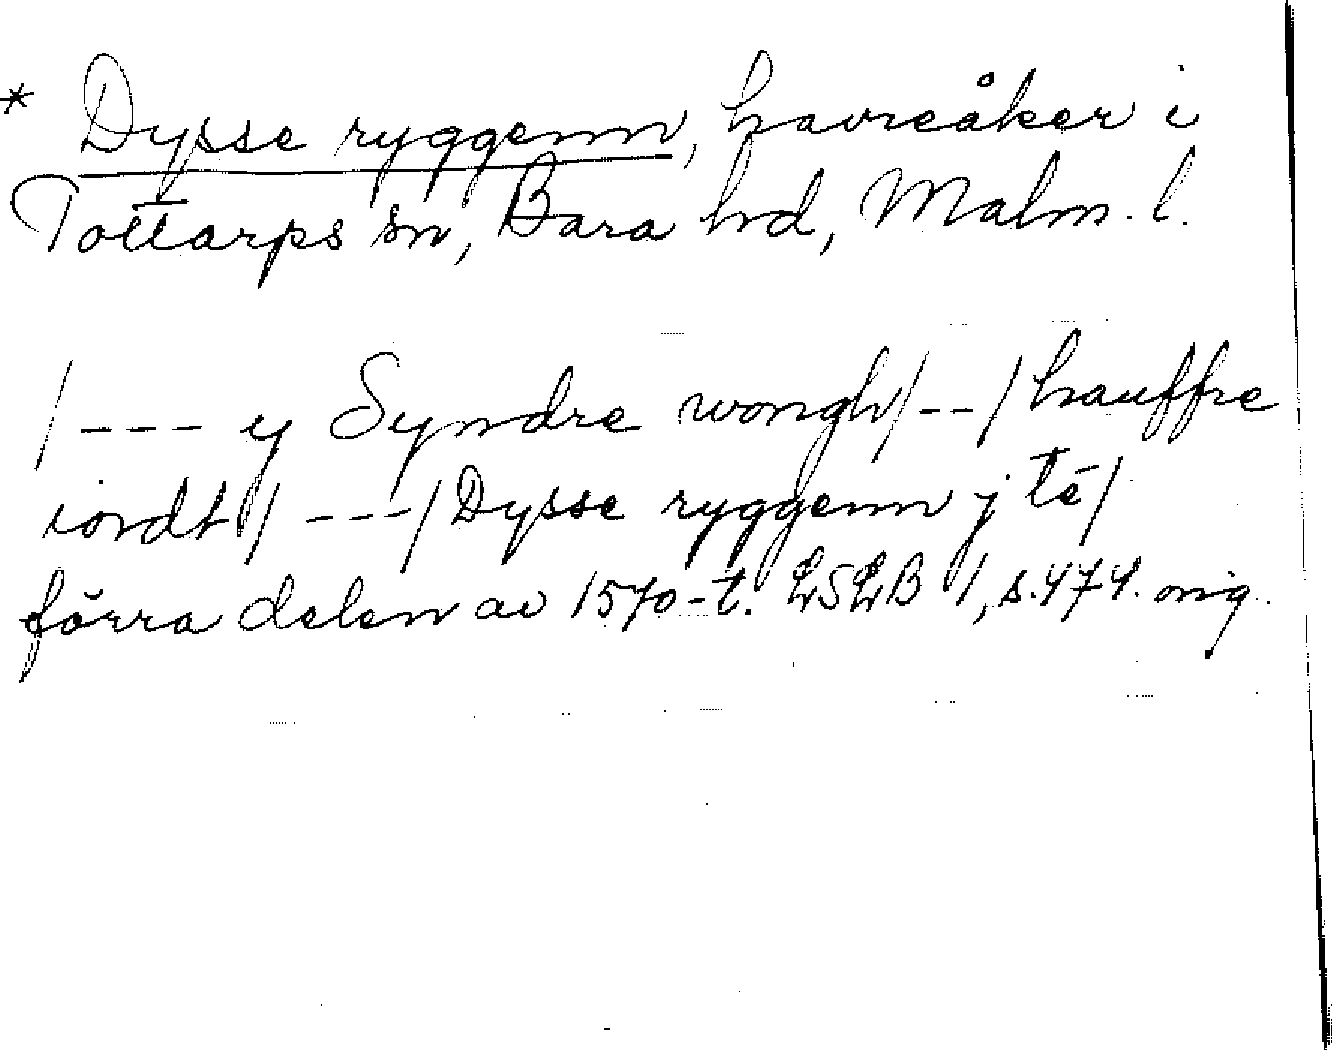 * Dysse ryggenn, havreåker i
Tottarps sn, Bara hd, Malm. l.
/--- y Syndre wongh/--/hauffre
iordt/---/Dysse ryggenn j tē/
förra delen av 1570-t. LSLB 1, s. 474. orig.